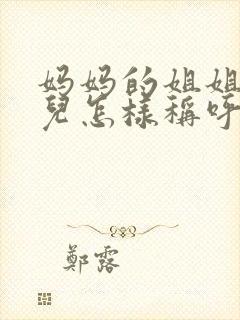 妈妈的姐姐
兒怎樣稱呼
鄭露